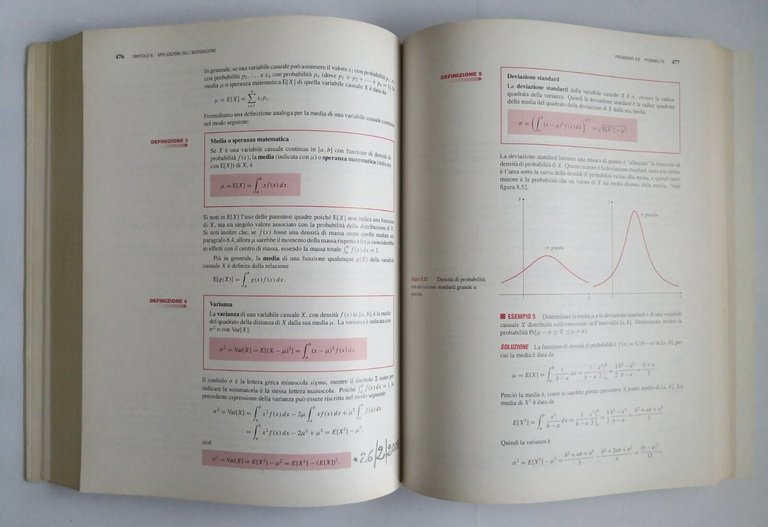 476 CAPITOLO 8 APPLICAZIONI DELL'INTEGRAZIONE
In generale, se una variabile casuale può assumere il valore x₁ con probabilità p₁, x₂
con probabilità p₂, … e xₙ con probabilità pₙ (dove p₁ + p₂ + ⋯ + pₙ = 1), la
media μ o speranza matematica E[X] di quella variabile casuale X è data da
μ = E[X] = ∑ xᵢpᵢ.
Forniamo una definizione analoga per la media di una variabile casuale continua
nel modo seguente:
DEFINIZIONE 3
Media o speranza matematica
Se X è una variabile casuale continua in [a, b] con funzione di densità di
probabilità f(x), la media (indicata con μ) o speranza matematica (indicata
con E[X]) di X, è
μ = E[X] = ∫ₐᵇ x f(x) dx.
Si noti in E[X] l'uso delle parentesi quadre poiché E[X] non indica una funzione
di X, ma un singolo valore associato con la probabilità della distribuzione di X.
Si noti inoltre che, se f(x) fosse una densità di massa come quelle studiate nel
paragrafo 8.4, allora μ sarebbe il momento della massa rispetto a 0 e μ coinciderebbe
in effetti con il centro di massa, essendo la massa totale ∫ₐᵇ f(x) dx = 1.
Più in generale, la media di una funzione qualunque g(X) della variabile
casuale X è definita dalla relazione
E[g(X)] = ∫ₐᵇ g(x) f(x) dx.
DEFINIZIONE 4
Varianza
La varianza di una variabile casuale X, con densità f(x) in [a, b], è la media
del quadrato della distanza di X dalla sua media μ. La varianza è indicata con
σ² o con Var[X]:
σ² = Var[X] = E[(X − μ)²] = ∫ₐᵇ (x − μ)² f(x) dx.
Il simbolo σ è la lettera greca minuscola sigma, mentre il simbolo Σ usato per
indicare la sommatoria è la stessa lettera maiuscola. Poiché ∫ₐᵇ f(x) dx = 1, la
precedente espressione della varianza può essere riscritta nel modo seguente:
σ² = Var[X] = ∫ₐᵇ x² f(x) dx − 2μ ∫ₐᵇ x f(x) dx + μ² ∫ₐᵇ f(x) dx
= ∫ₐᵇ x² f(x) dx − 2μ² + μ² = E[X²] − μ²,
cioè
σ² = Var[X] = E[X²] − μ² = E[X²] − (E[X])².
26/2/200
PARAGRAFO 8.8 PROBABILITÀ 477
DEFINIZIONE 5
Deviazione standard
La deviazione standard della variabile casuale X è σ, ovvero la radice
quadrata della varianza. Quindi la deviazione standard è la radice quadrata
della media del quadrato della deviazione di X dalla sua media:
σ = (∫ₐᵇ (x − μ)² f(x) dx)^1/2 = √E[X²] − μ².
La deviazione standard fornisce una misura di quanto è "allargata" la funzione di
densità di probabilità di X. Quanto minore è la deviazione standard, tanto più stretta
è l'area sotto la curva della densità di probabilità vicino alla media, e quindi tanto
minore è la probabilità che un valore di X sia molto distante dalla media. Vedi
figura 8.52.
y
y
σ piccola
σ grande
x
x
Figura 8.52 Densità di probabilità
con deviazione standard grande e
piccola
ESEMPIO 5 Determinare la media μ e la deviazione standard σ di una variabile
casuale X distribuita uniformemente nell'intervallo [a, b]. Determinare inoltre la
probabilità Pr[μ − σ ≤ X ≤ μ + σ].
SOLUZIONE La funzione di densità di probabilità è f(x) = 1/(b − a) in [a, b], per
cui la media è data da
μ = E[X] = ∫ₐᵇ x/(b − a) dx = 1/(b − a) x²/2 |ₐᵇ = 1/2 (b² − a²)/(b − a) = (b + a)/2.
Perciò la media è, come si sarebbe potuto prevedere, il punto medio di [a, b]. La
media di X² è data da
E[X²] = ∫ₐᵇ x²/(b − a) dx = 1/(b − a) x³/3 |ₐᵇ = 1/3 (b³ − a³)/(b − a) = (b² + ab + a²)/3.
Quindi la varianza è
σ² = E[X²] − μ² = (b² + ab + a²)/3 − (b² + 2ab + a²)/4 = (b − a)²/12,